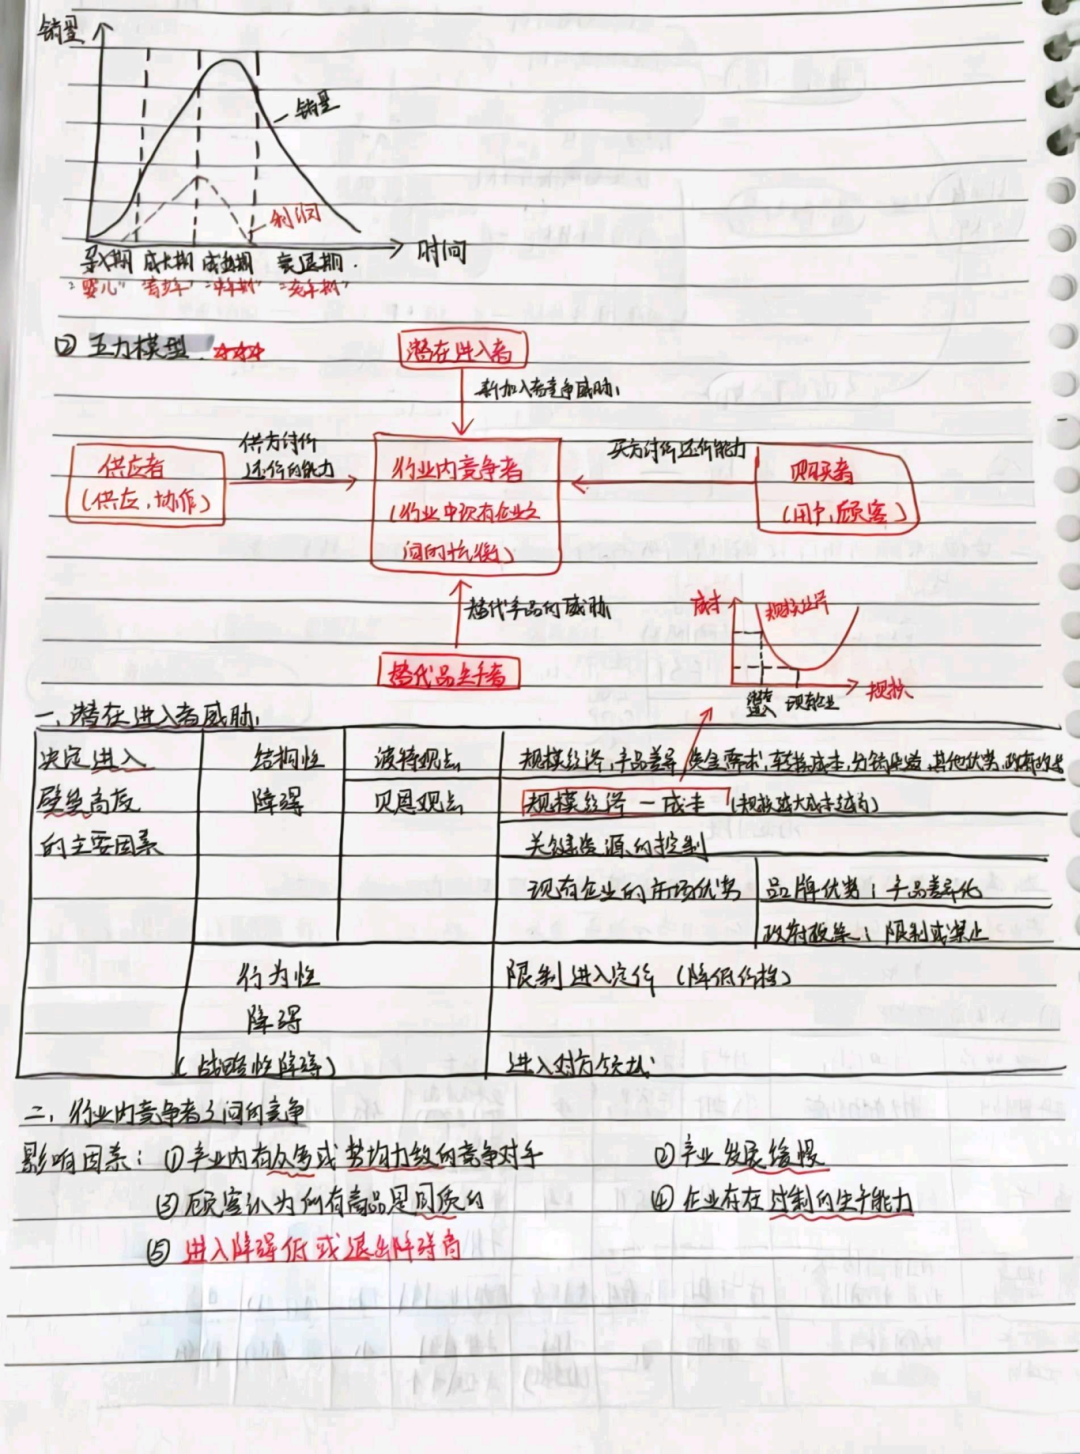 销量
销量
利润
时间
导入期 成长期 成熟期 衰退期
"婴儿" "青少年" "中年期" "老年期"
② 五力模型 ☆☆☆
潜在进入者
新加入者竞争威胁
供应者
(供应,协作)
供方讨价
还价的能力
行业内竞争者
(行业中现有企业之
间的抗衡)
买方讨价还价能力
购买者
(用户,顾客)
替代产品的威胁
替代品生产者
成本
规模经济
规模
现有企业
一、潜在进入者威胁
决定进入
壁垒高度
的主要因素
结构性
障碍
波特观点
规模经济,产品差异,资金需求,转换成本,分销渠道,其他优势,政府政策
贝恩观点
规模经济 — 成本 (规模越大成本越低)
关键资源的控制
现有企业的市场优势
品牌优势:产品差异化
政府政策:限制或禁止
行为性
障碍
(战略性障碍)
限制进入定价 (降低价格)
进入对方领域
二、行业内竞争者之间的竞争
影响因素:①产业内有众多或势均力敌的竞争对手 ②产业发展缓慢
③顾客认为所有商品是同质的 ④企业存在过剩的生产能力
⑤ 进入障碍低或退出障碍高